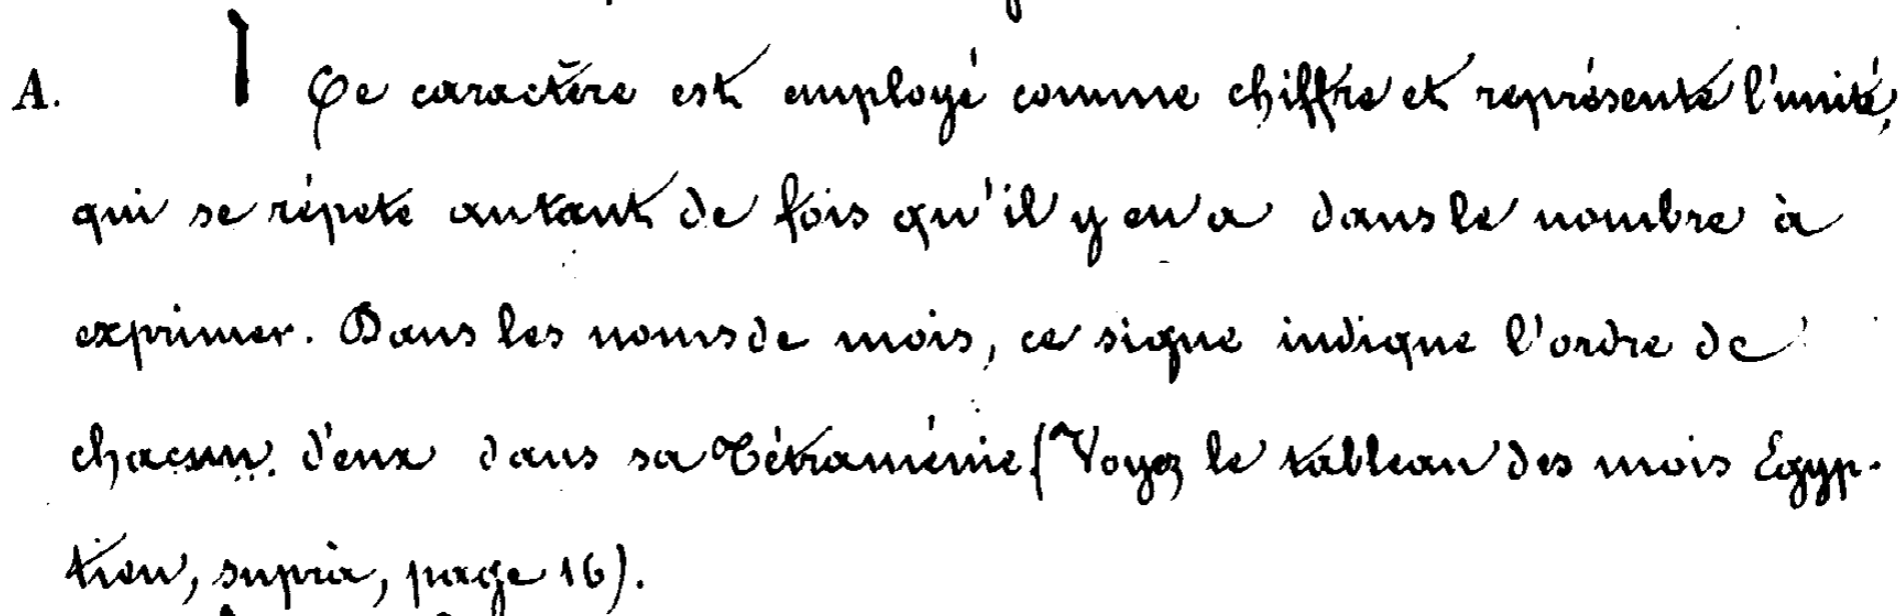 A. 𓏺 Ce caractère est employé comme chiffre et représente l'unité,
qui se répete autant de fois qu'il y en a dans le nombre à
exprimer. Dans les noms de mois, ce signe indique l'ordre de
chacun d'eux dans sa Tétraménie (Voyez le tableau des mois Egyp-
tien, suprà, page 16).